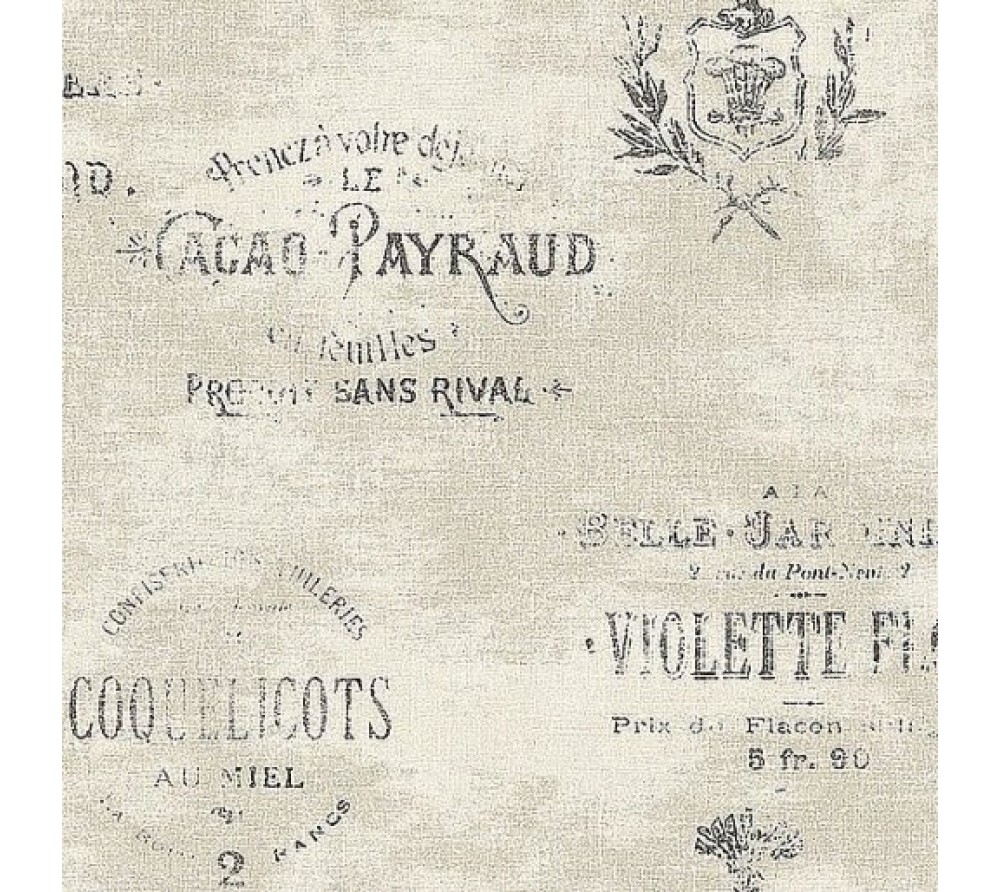 Prenez à votre
LE
CACAO PAYRAUD
en feuilles
PRODUIT SANS RIVAL
A LA
BELLE JARDINI
2 rue du Pont-Neuf 2
VIOLETTE
Prix du Flacon
5 fr. 90
CONFISERIE DES TUILERIES
COQUELICOTS
AU MIEL
LA
2 FRANCS